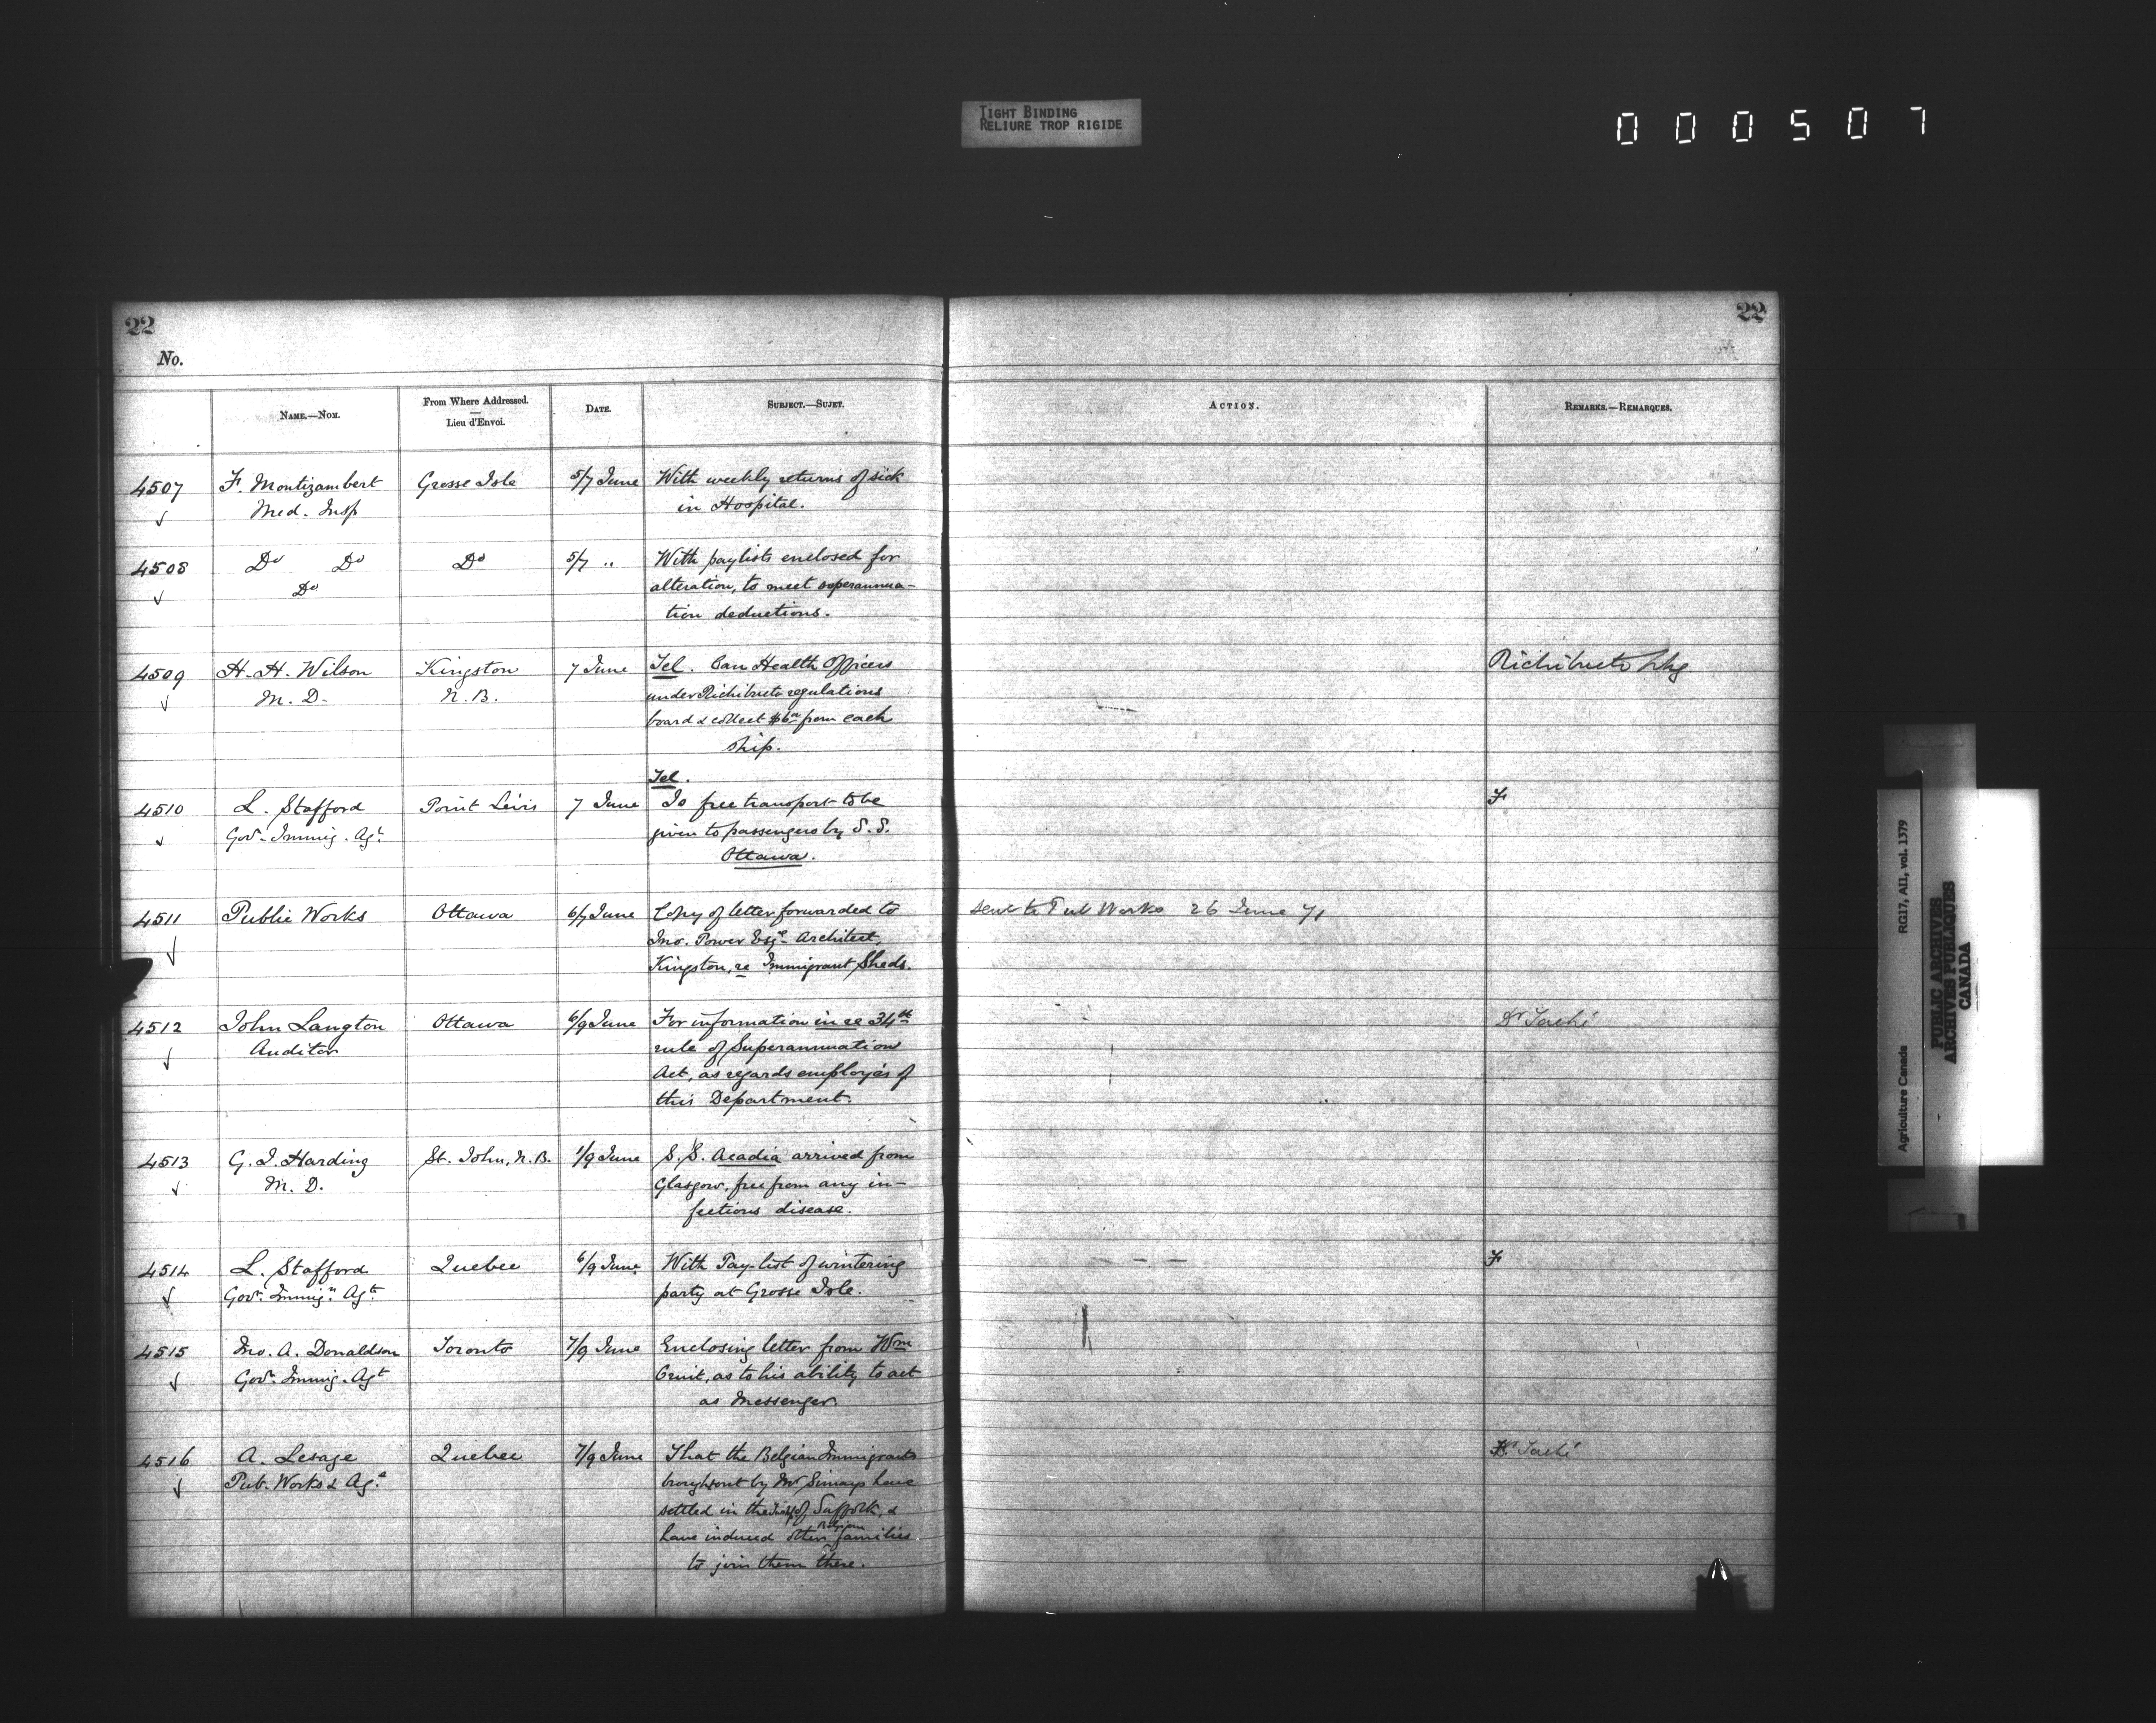 TIGHT BINDING
RELIURE TROP RIGIDE
000507
22
22
No.
NAME.—NOM.
From Where Addressed.
—
Lieu d'Envoi.
DATE.
SUBJECT.—SUJET.
ACTION.
REMARKS.—REMARQUES.
4507 F. Montizambert Grosse Isle 5/7 June With weekly returns of sick
Med. Insp in Hospital.
4508 Do Do Do 5/7 " With paylists enclosed for
Do alteration, to meet superannua-
tion deductions.
4509 H. H. Wilson Kingston 7 June Tel. Can Health Officers Richibucto
M. D. N. B. under Richibucto regulations
board & collect $6 from each
ship.
Tel.
4510 L. Stafford Point Levis 7 June Is free transport to be F
Govt. Immig. Agt. given to passengers by S. S.
Ottawa.
4511 Public Works Ottawa 6/7 June Copy of letter forwarded to sent to Pub Works 26 June 71
Jno. Power Esqre Architect,
Kingston, re Immigrant Sheds.
4512 John Langton Ottawa 6/9 June For information in re 34th Dr Taché
Auditor rule of Superannuation
Act, as regards employés of
this Department.
4513 G. J. Harding St. John, N. B. 1/9 June S. S. Acadia arrived from
M. D. Glasgow, free from any in-
fectious disease.
4514 L. Stafford Quebec 6/9 June With Pay-list of wintering F
Govt. Immign. Agt. party at Grosse Isle.
4515 Jno. A. Donaldson Toronto 7/9 June Enclosing letter from Wm
Govt. Immig. Agt as to his ability to act
as Messenger.
4516 A. Lesage Quebec 7/9 June That the Belgian Immigrants Taché
Pub. Works & Agre brought out by Mr Simays have
settled in the of Suffolk, &
Belgian
have induced other families
to join them there.
Agriculture Canada RG17, AII, vol. 1379
PUBLIC ARCHIVES
ARCHIVES PUBLIQUES
CANADA